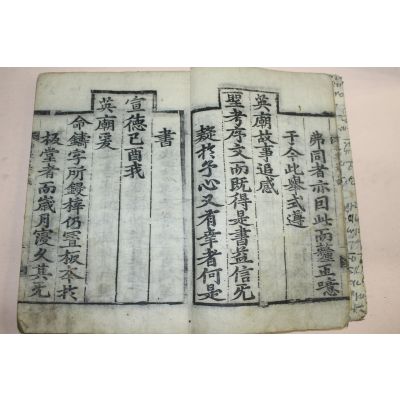 弗同者亦因此而釐正噫
于今此舉式遵
英廟故事追感
聖考序文而既得是書益信旡
疑於予心又有幸者何是
書
宣德己酉我
英廟爰
命鑄字所鋟梓仍置板本於
板堂者而歲月寖久其旡